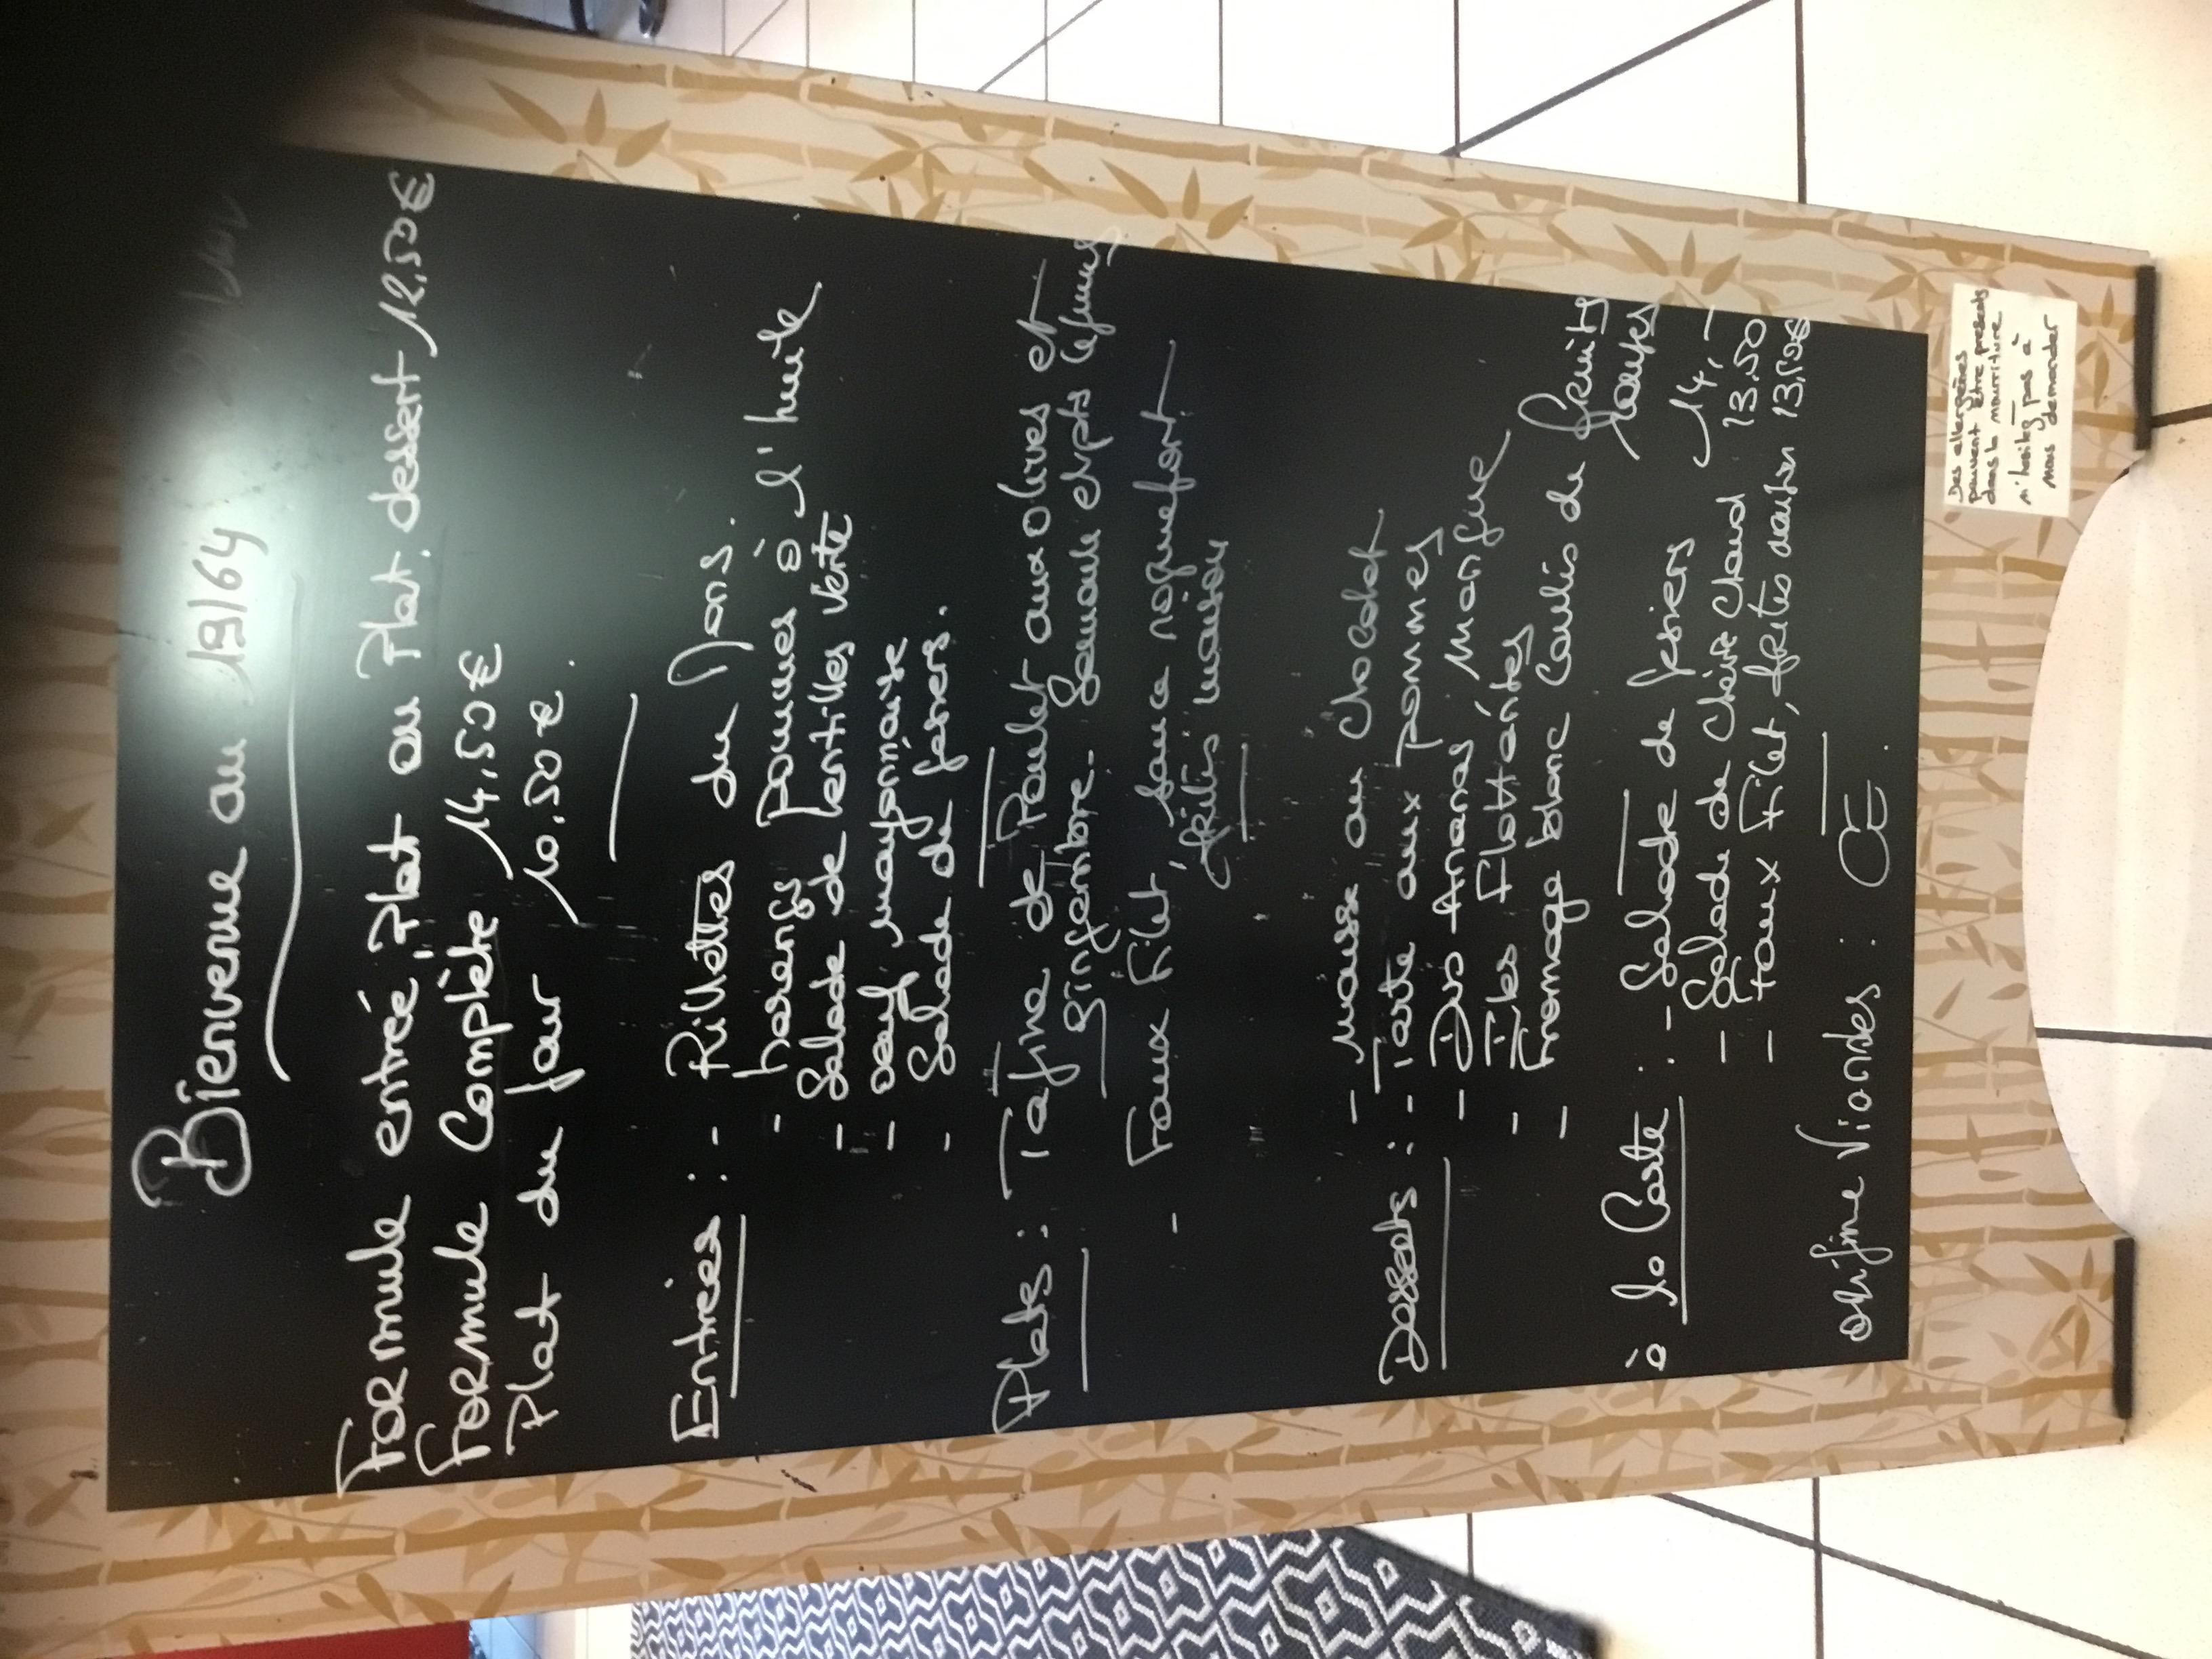 Bienvenue au 19/64
Formule entrée, Plat ou Plat, dessert 12,50€
Formule Complète 14,50€
Plat du jour 10,50€.
Entrées : - Rillettes du Mans.
- harengs pommes à l'huile
- Salade de lentilles verte
- oeuf mayonnaise
- Salade de gesiers.
Plats : Tajine de Poulet aux olives et
gingembre. Semoule et pts légumes
- Faux Filet, sauce roquefort
frites maison
- Mousse au chocolat
Desserts : - Tarte aux pommes
- Duo Ananas Mangue
- Iles Flottantes
- Fromage blanc Coulis de fruits
rouges
à la Carte : - Salade de gesiers 14,-
- Salade de chèvre chaud 13.50
- Faux Filet, frites maison 13,50€
Origine Viandes : CE.
Des allergènes
peuvent être présents
dans la nourriture
n'hésitez pas à
nous demander